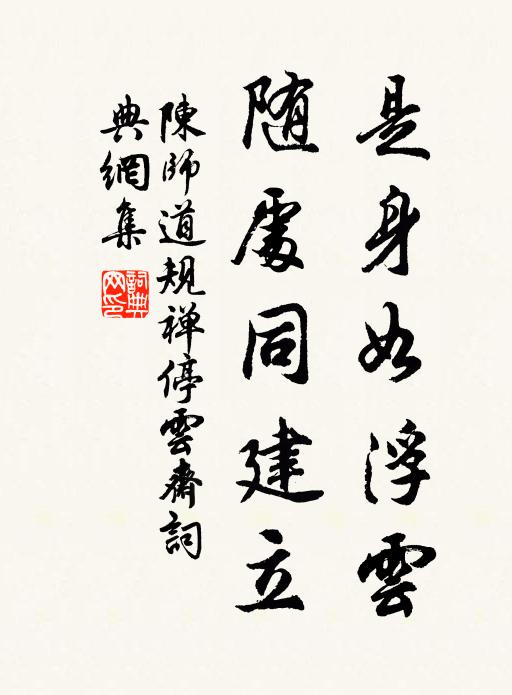 是身如浮雲
随處同建立
陳師道規禅停雲齋詞
典網集
詞典网印